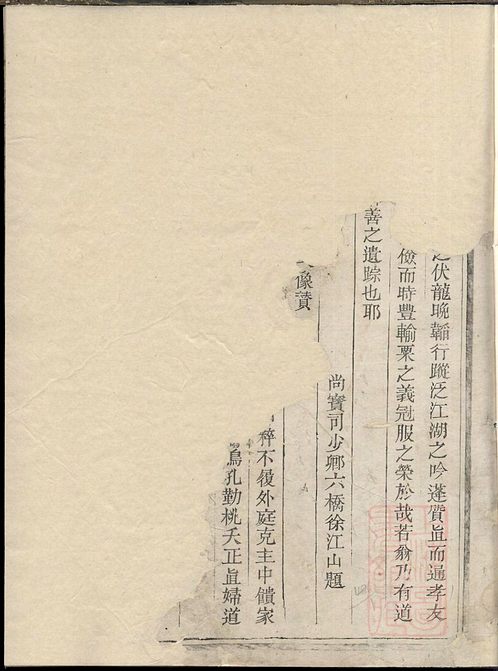 伏龍晚韜行蹤泛江湖之吟蓬質眞而遍孝友
儉而時豐輸粟之義冠服之榮於哉若翁乃有道
善之遺踪也耶
尚寶司少卿六橋徐江山題
像賛
粹不履外庭克主中饋家
孔勤桃夭正眞婦道